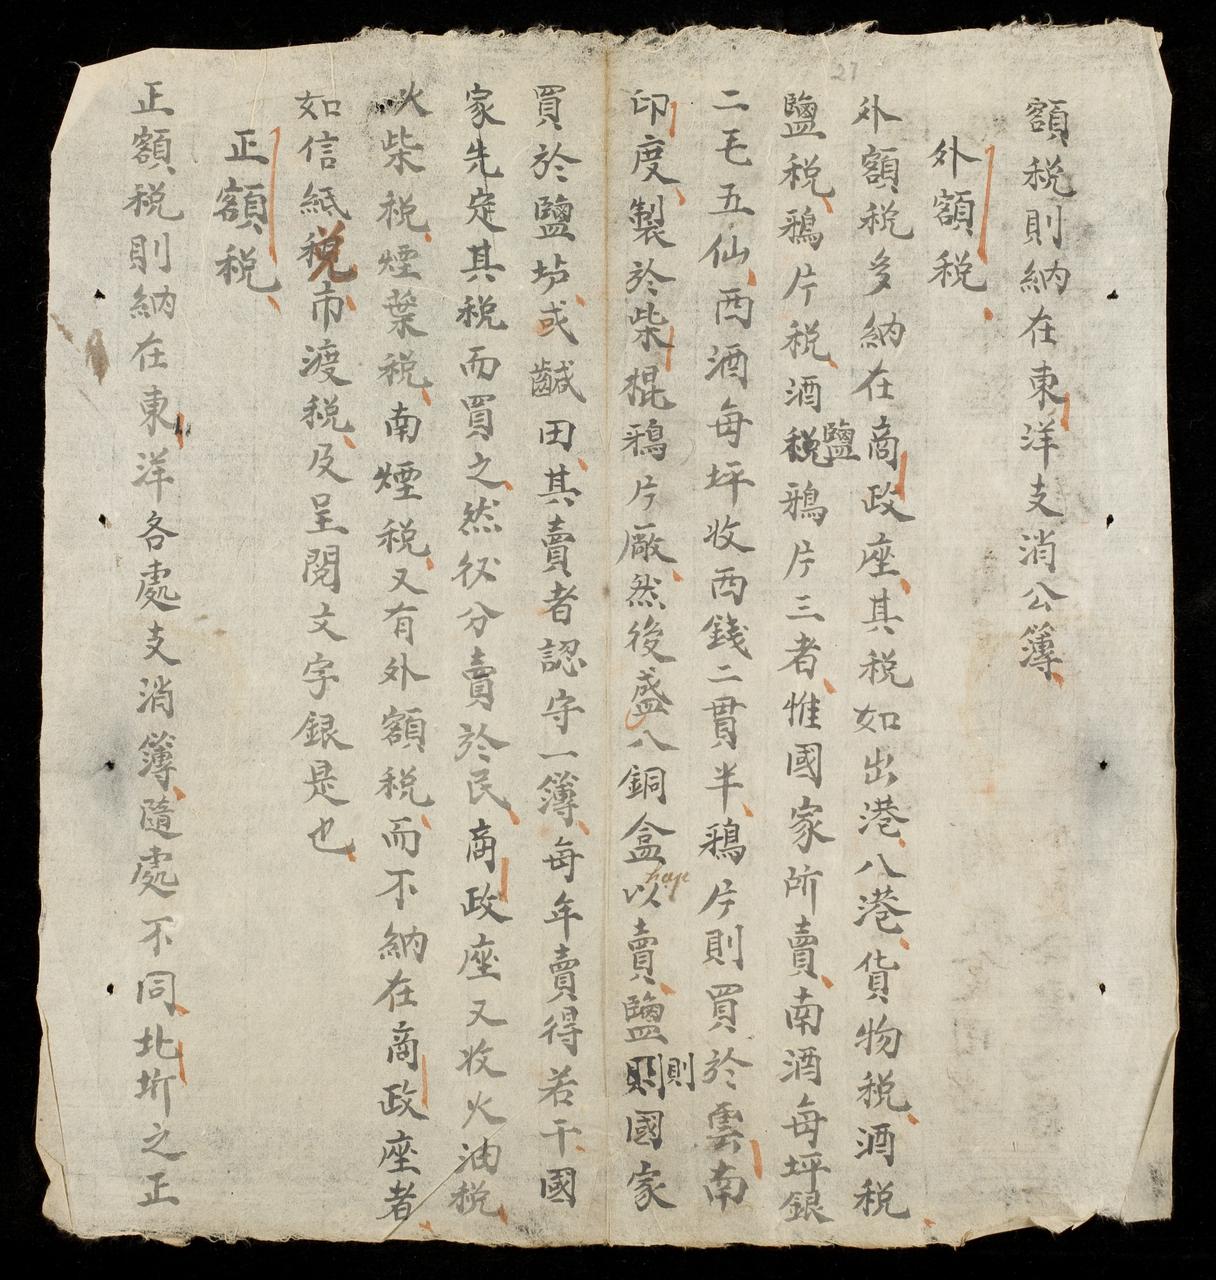 27
額税則納在東洋支消公簿
外額税
外額税多納在商政座其税如出港八港貨物税酒税
鹽税鴉片税酒税鹽鴉片三者惟國家所賣南酒每坪銀
二毛五仙西酒每坪收西錢二貫半鴉片則買於雲南
印度製於柴棍鴉片廠然後盛八銅盒以賣鹽則則國家
hap
買於鹽坊或鹹田其賣者認守一簿每年賣得若干國
家先定其税而買之然後分賣於民商政座又收火油税
火柴税煙葉税南煙税又有外額税而不納在商政座者
如信紙税市渡税及呈閱文字銀是也
正額税
正額税則納在東洋各處支消簿隨處不同北圻之正